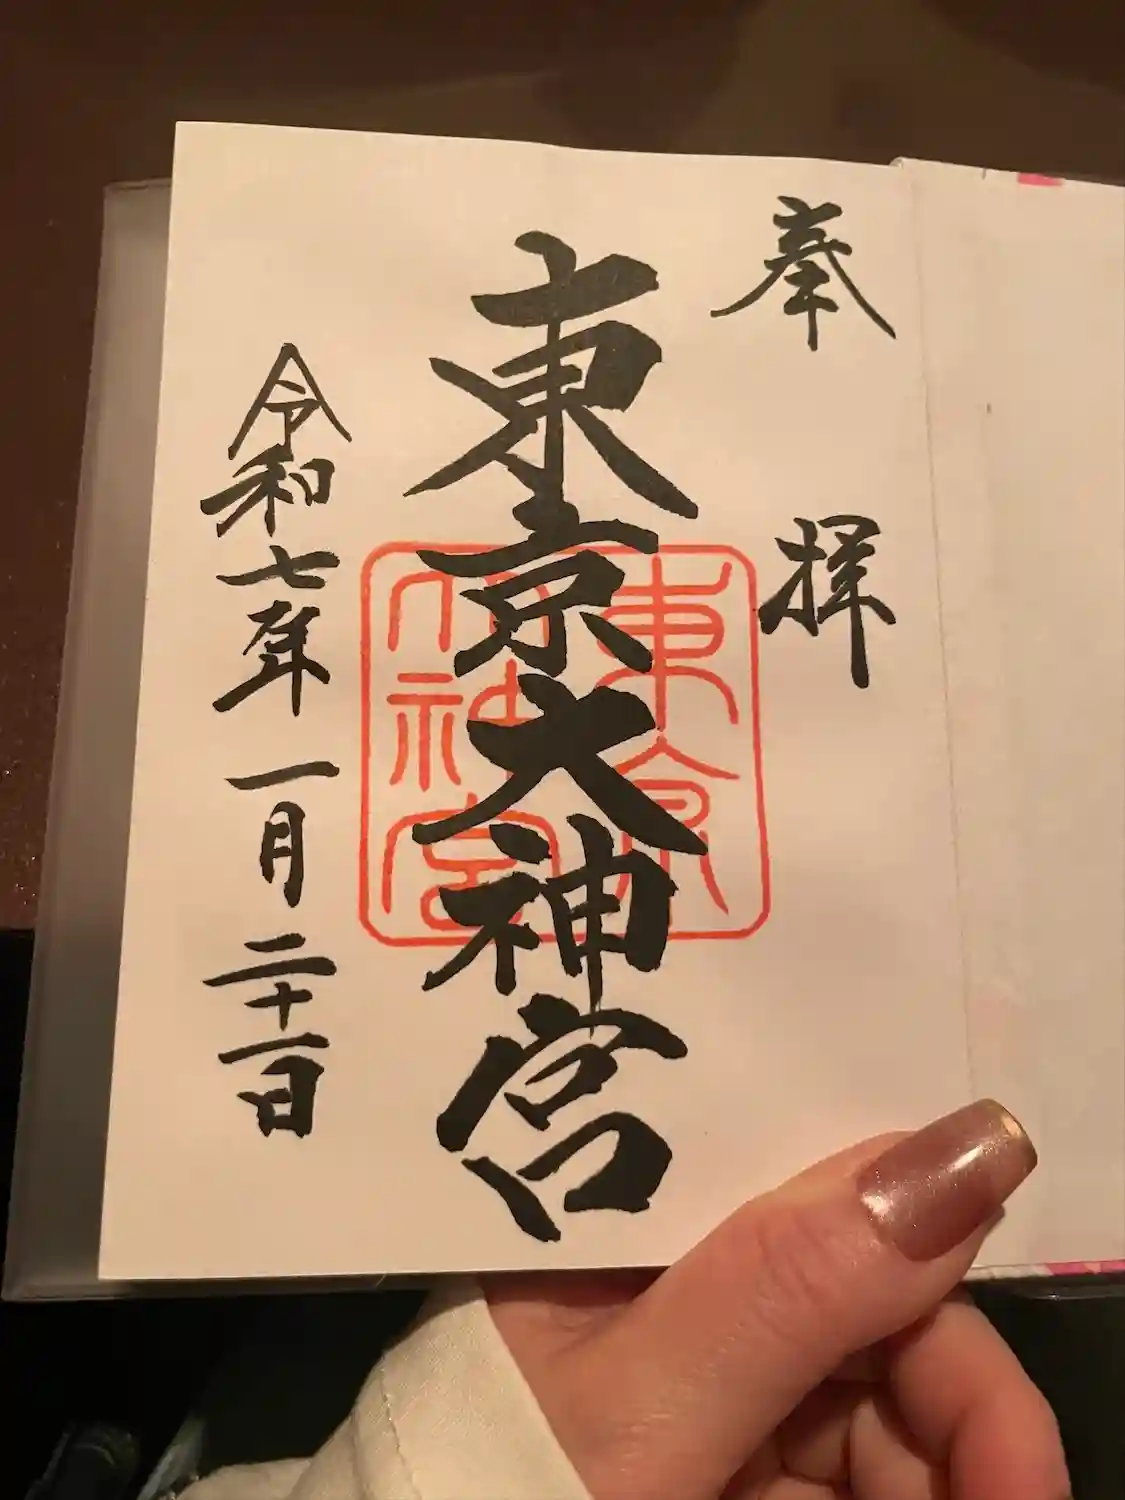 奉拝
東京大神宮
東京
大神宮
令和七年一月二十一日